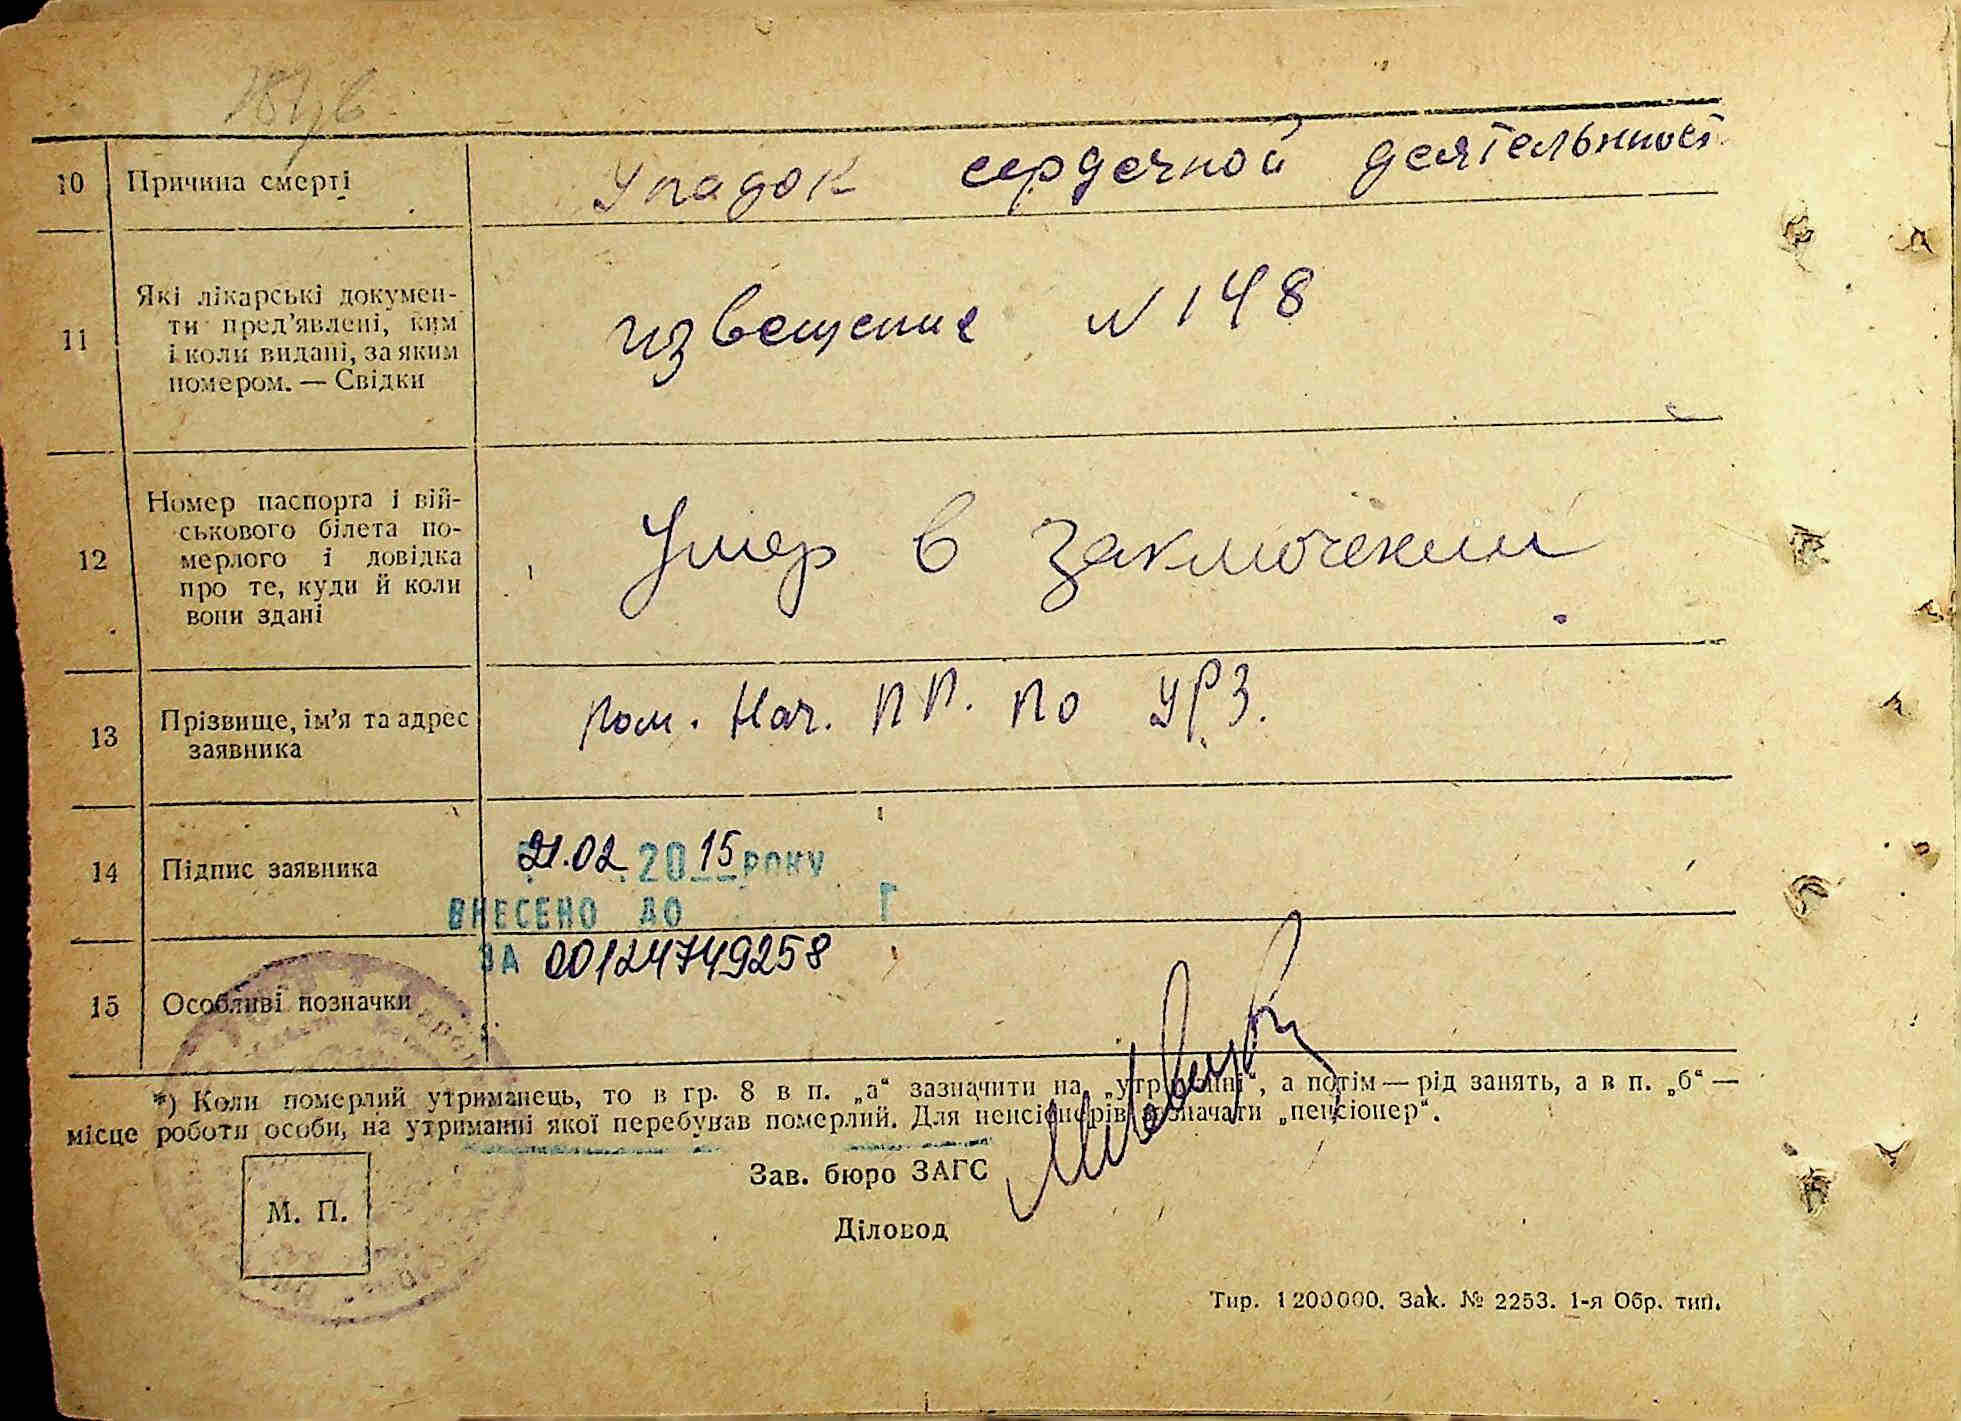 10 Причина смерті Упадок сердечной деятельности
11 Які лікарські докумен-
ти пред’явлені, ким
і коли видані, за яким
номером. — Свідки
извещение N 148
12 Номер паспорта і вій-
ськового білета по-
мерлого і довідка
про те, куди й коли
вони здані
Умер в заключении
13 Прізвище, ім’я та адрес
заявника
Пом. Нач. ПП. по УРЗ.
14 Підпис заявника
21.02.2015 РОКУ
ВНЕСЕНО ДО Г
ЗА 00124749258
15 Особливі позначки
*) Коли померлий утриманець, то в гр. 8 в п. „а“ зазначити на „утриманні“, а потім — рід занять, а в п. „б“ —
місце роботи особи, на утриманні якої перебував померлий. Для пенсіонерів зазначати „пенсіонер“.
Зав. бюро ЗАГС
М. П.
Діловод
Тир. 1200000. Зак. № 2253. 1-я Обр. тип.